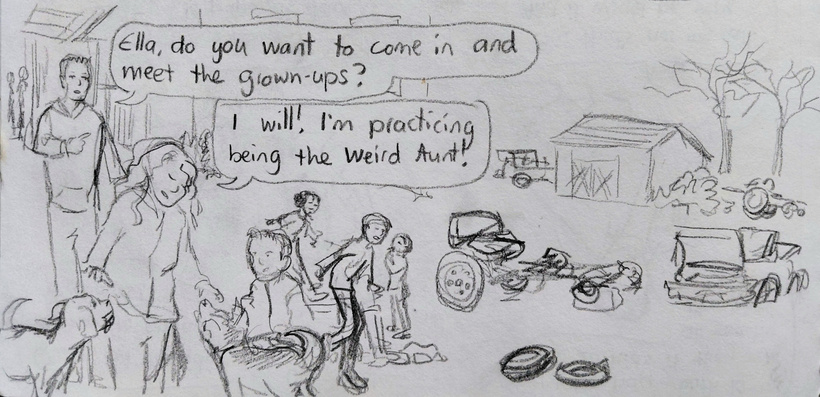 Ella, do you want to come in and
meet the grown-ups?
I will! I'm practicing
being the Weird Aunt!